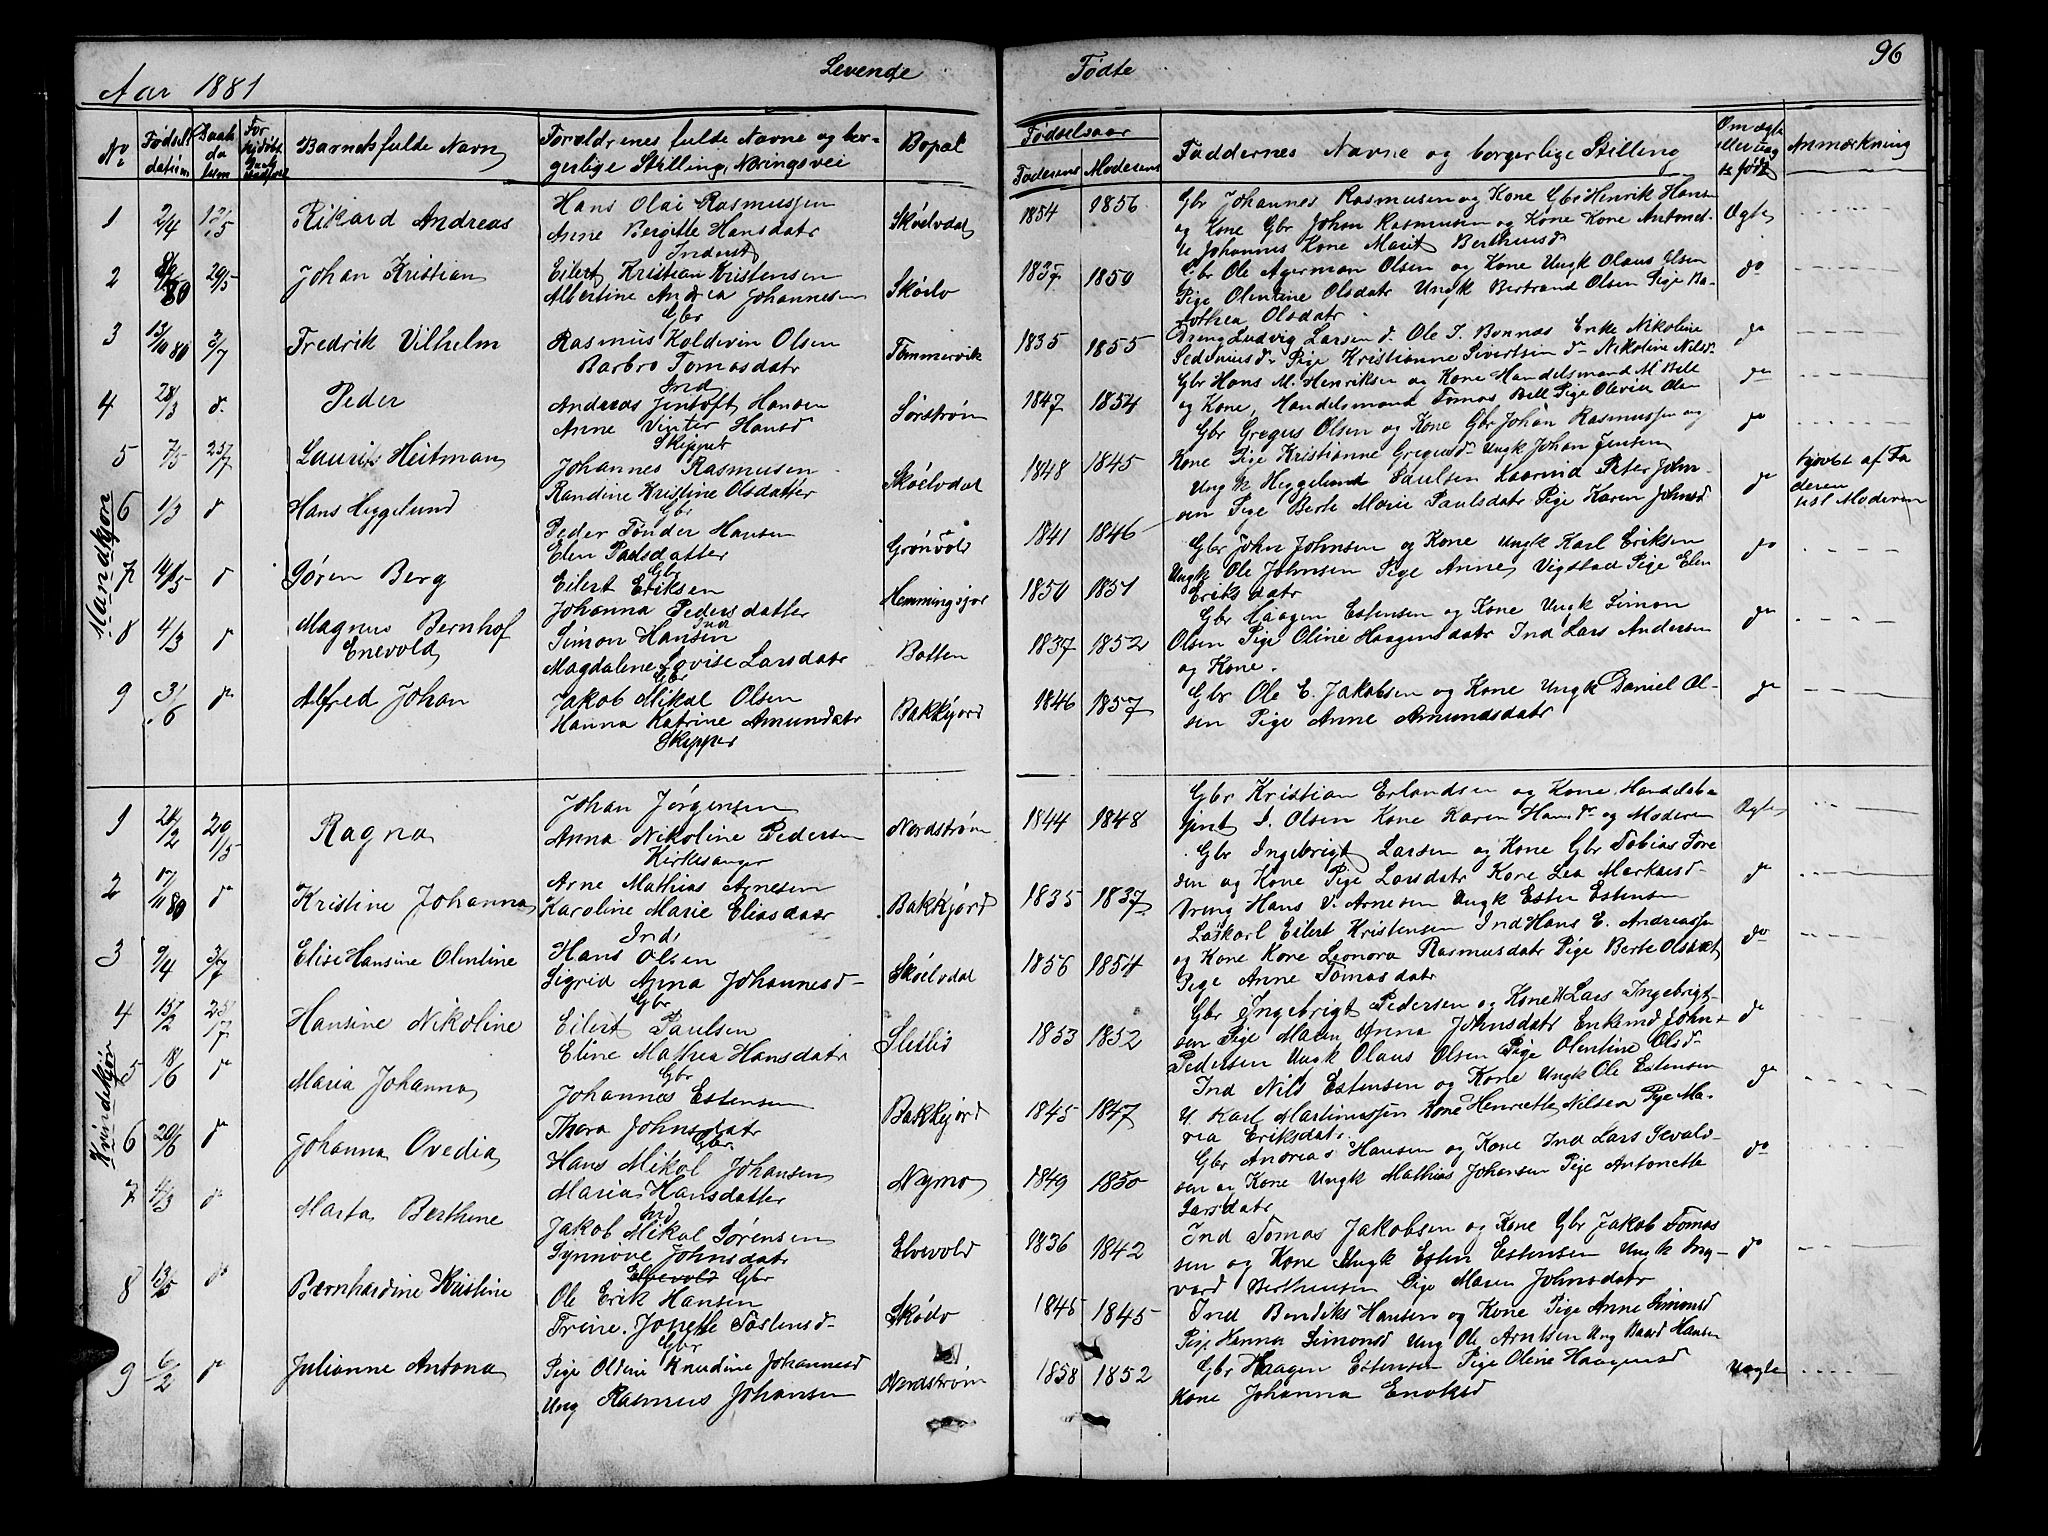 96
Aar 1881 Levende Fødte
No Fødsels datum Daab da tum Barnets fulde Navn Forældrenes fulde Navne og bor-
gerlige Stilling, Næringsvei Bopæl Fødselsaar Faderens Moderens Faddernes Navne og borgerlige Stilling Om ægte eller uæg te født Anmærkning
Mandkjøn
1 2/4 Rikard Andreas
Hans Olai Rasmussen
Anne Bergitte Hansdatr
Inderst
Skøelvdal 1854 1856
Gbr Johannes Rasmusen og Kone Gbr Henrik Hansen
og Kone Gbr Johan Rasmusen og Kone Kone Antonet-
te Johannes Kone Marit Berthusd
Ægte
2 80 29/5 Johan Kristian
Eilert Kristian Kristensen
Albertine Andrea Johannesen
Gbr
Skøelv 1837 1850
Gbr Ole Agerman Olsen og Kone Ungk Olaus Olsen
Pige Olentine Olsdatr Ungk Bertrand Olsen Pige Ba-
rothea Olsdatr
do
3 13/10 80 3/7 Fredrik Vilhelm
Rasmus Koldevin Olsen
Barbro Tomasdatr
Ind
Tømmervik 1835 1855
Dreng Ludvig Larsen d. Ole I. Bonnas Enke Nikoline
Pedeniusdr Pige Kristianne Sivertsen do Nikoline Nilsd-
do
4 28/3 do Peder
Andreas Jentoft Hansen
Anne Vinter Hansd
Skipper
Sørstrøm 1847 1854
Gbr Hans M. Henriksen og Kone Handelsmand M Bell
og Kone, Handelsmand Tomas Bell Pige Olevia Olsen
do
5 7/5 25/7 Laurits Heitman
Johannes Rasmusen
Randine Kristine Olsdatter
Gbr
Skøelvdal 1848 1845
Gbr Gregus Olsen og Kone Gbr Johan Rasmussen og
Kone Pige Kristianne Gregusd Ungk Johan Jensen
do
hjdøbt af Fa
deren
6 1/3 do Hans Heggelund
Peder Tønder Hansen
Elen Paulsdatter
Gbr
Grønvold 1841 1846
Ungk Heggelund Paulsen Peter John-
sen Pige Berte Marie Paulsdatr Pige Karen Johnsd
do
7 14/5 do Søren Berg
Eilert Eriksen
Johanna Pedersdatter
Ind
Hemmingsjor 1850 1851
Gbr John Johnsen og Kone Ungk Karl Eriksen
Ungk Ole Johnsen Pige Anne Vigstad Pige Elen
Eriksdatr
do
8 4/3 do Magnus Bernhof
Enevold
Simon Hansen
Magdalene Lovise Larsdatr
Gbr
Botten 1837 1852
Gbr Haagen Estensen og Kone Ungk Simon
Olsen Pige Oline Haagensdatr Ind Lars Andersen
og Kone.
do
9 3/6 do Alfred Johan
Jakob Mikal Olsen
Hanna Katrine Amundatr
Skipper
Bakkejord 1846 1857
Gbr Ole E. Jakobsen og Kone Ungk Daniel Ol-
sen Pige Anne Amundsdatr
do
Kvindekjøn
1 29/15 Ragna
Johan Jørgensen
Anna Nikoline Pedersen
Kirkesanger
Nordstrøm 1844 1848
Gbr Kristian Erlandsen og Kone, Handelsbe
tjent I. Olsen Kone Karen Hansdr og Moderen
Ægte
2 17/11 80 do Kristine Johanna
Arne Mathias Arnesen
Karoline Marie Eliasdaar
Ind,
Bakkjord 1835 1837
Gbr Ingebrigt Larsen og Kone Gbr Tobias Tore
sen og Kone Pige Larsdatr Kone Lea Markusd-
Dreng Hans V. Arnesen Ungk Esten Estensen
do
3 9/4 3/7 Elise Hansine Olentine
Hans Olsen
Sigrid Anna Johannesd-
Gbr
Skøelvdal 1856 1854
Laskarl Eilert Kristensen Ind Hans E. Andreassen
og Kone Kone Leonora Rasmusdatr Pige Berte Olsdat
Pige Anne Tomasdatr
do
4 15/2 25/7 Hansine Nikoline
Eilert Paulsen
Eline Mathea Hansdatr
Gbr
Sletlid 1853 1852
Gbr Ingebrigt Pedersen og Kone Lars Ingebrigt-
sen Pige Maren Anna Johnsdatr Enkemd John
Pedersen Ungk Olaus Olsen Pige Olentine Olsd-
do
5 18/6 do Maria Johanna
Johannes Estensen
Thora Johnsdatr
Gbr
Bakkejord 1845 1847
Ind Nils Estensen og Kone Ungk Ole Estensen
U. Karl Martinussen Kone Henriette Nilsen Pige Ma-
ria Eriksdatr.
do
6 20/6 do Johanna Ovedia
Hans Mikal Johansen
Maria Hansdatter
Ind
Nymo 1849 1850
Gbr Andreas Hansen og Kone Ind Lars Sevald-
sen og Kone Ungk Mathias Johansen Pige Antonette
Larsdatr
do
7 4/3 do Marta Berthine
Jakob Mikal Sørensen
Synnove Johnsdatr
Elvevold Gbr
Elvevold 1836 1842
Ind Tomas Jakobsen og Kone Gbr Jakob Tomas
sen og Kone Ungk Esten Estensen Ungk Ing-
vard Bertheusen Pige Maren Johnsdatr
do
8 13/5 do Bernhardine Kristine
Ole Erik Hansen
Trine Jonette Tostensd-
Gbr
Skøelv 1845 1845
Ind Bendiks Hansen og Kone Pige Anne Simonsd
Pige Hanna Simonsd Ung Ole Arntsen Ung Baard Hansen
9 6/2 do Julianne Antona
Pige Oldine Knudine Johannesd
Ung Rasmus Johansen
Nordstrøm 1858 1852
Gbr Haagen Estensen Pige Oline Haagensd
Kone Johanna Enoksd
Uægte